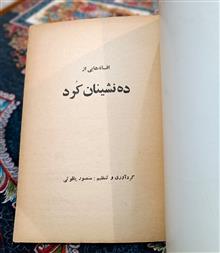 افسانه‌هایی از
ده نشینان کُرد
گردآوری و تنظیم : منصور یاقوتی